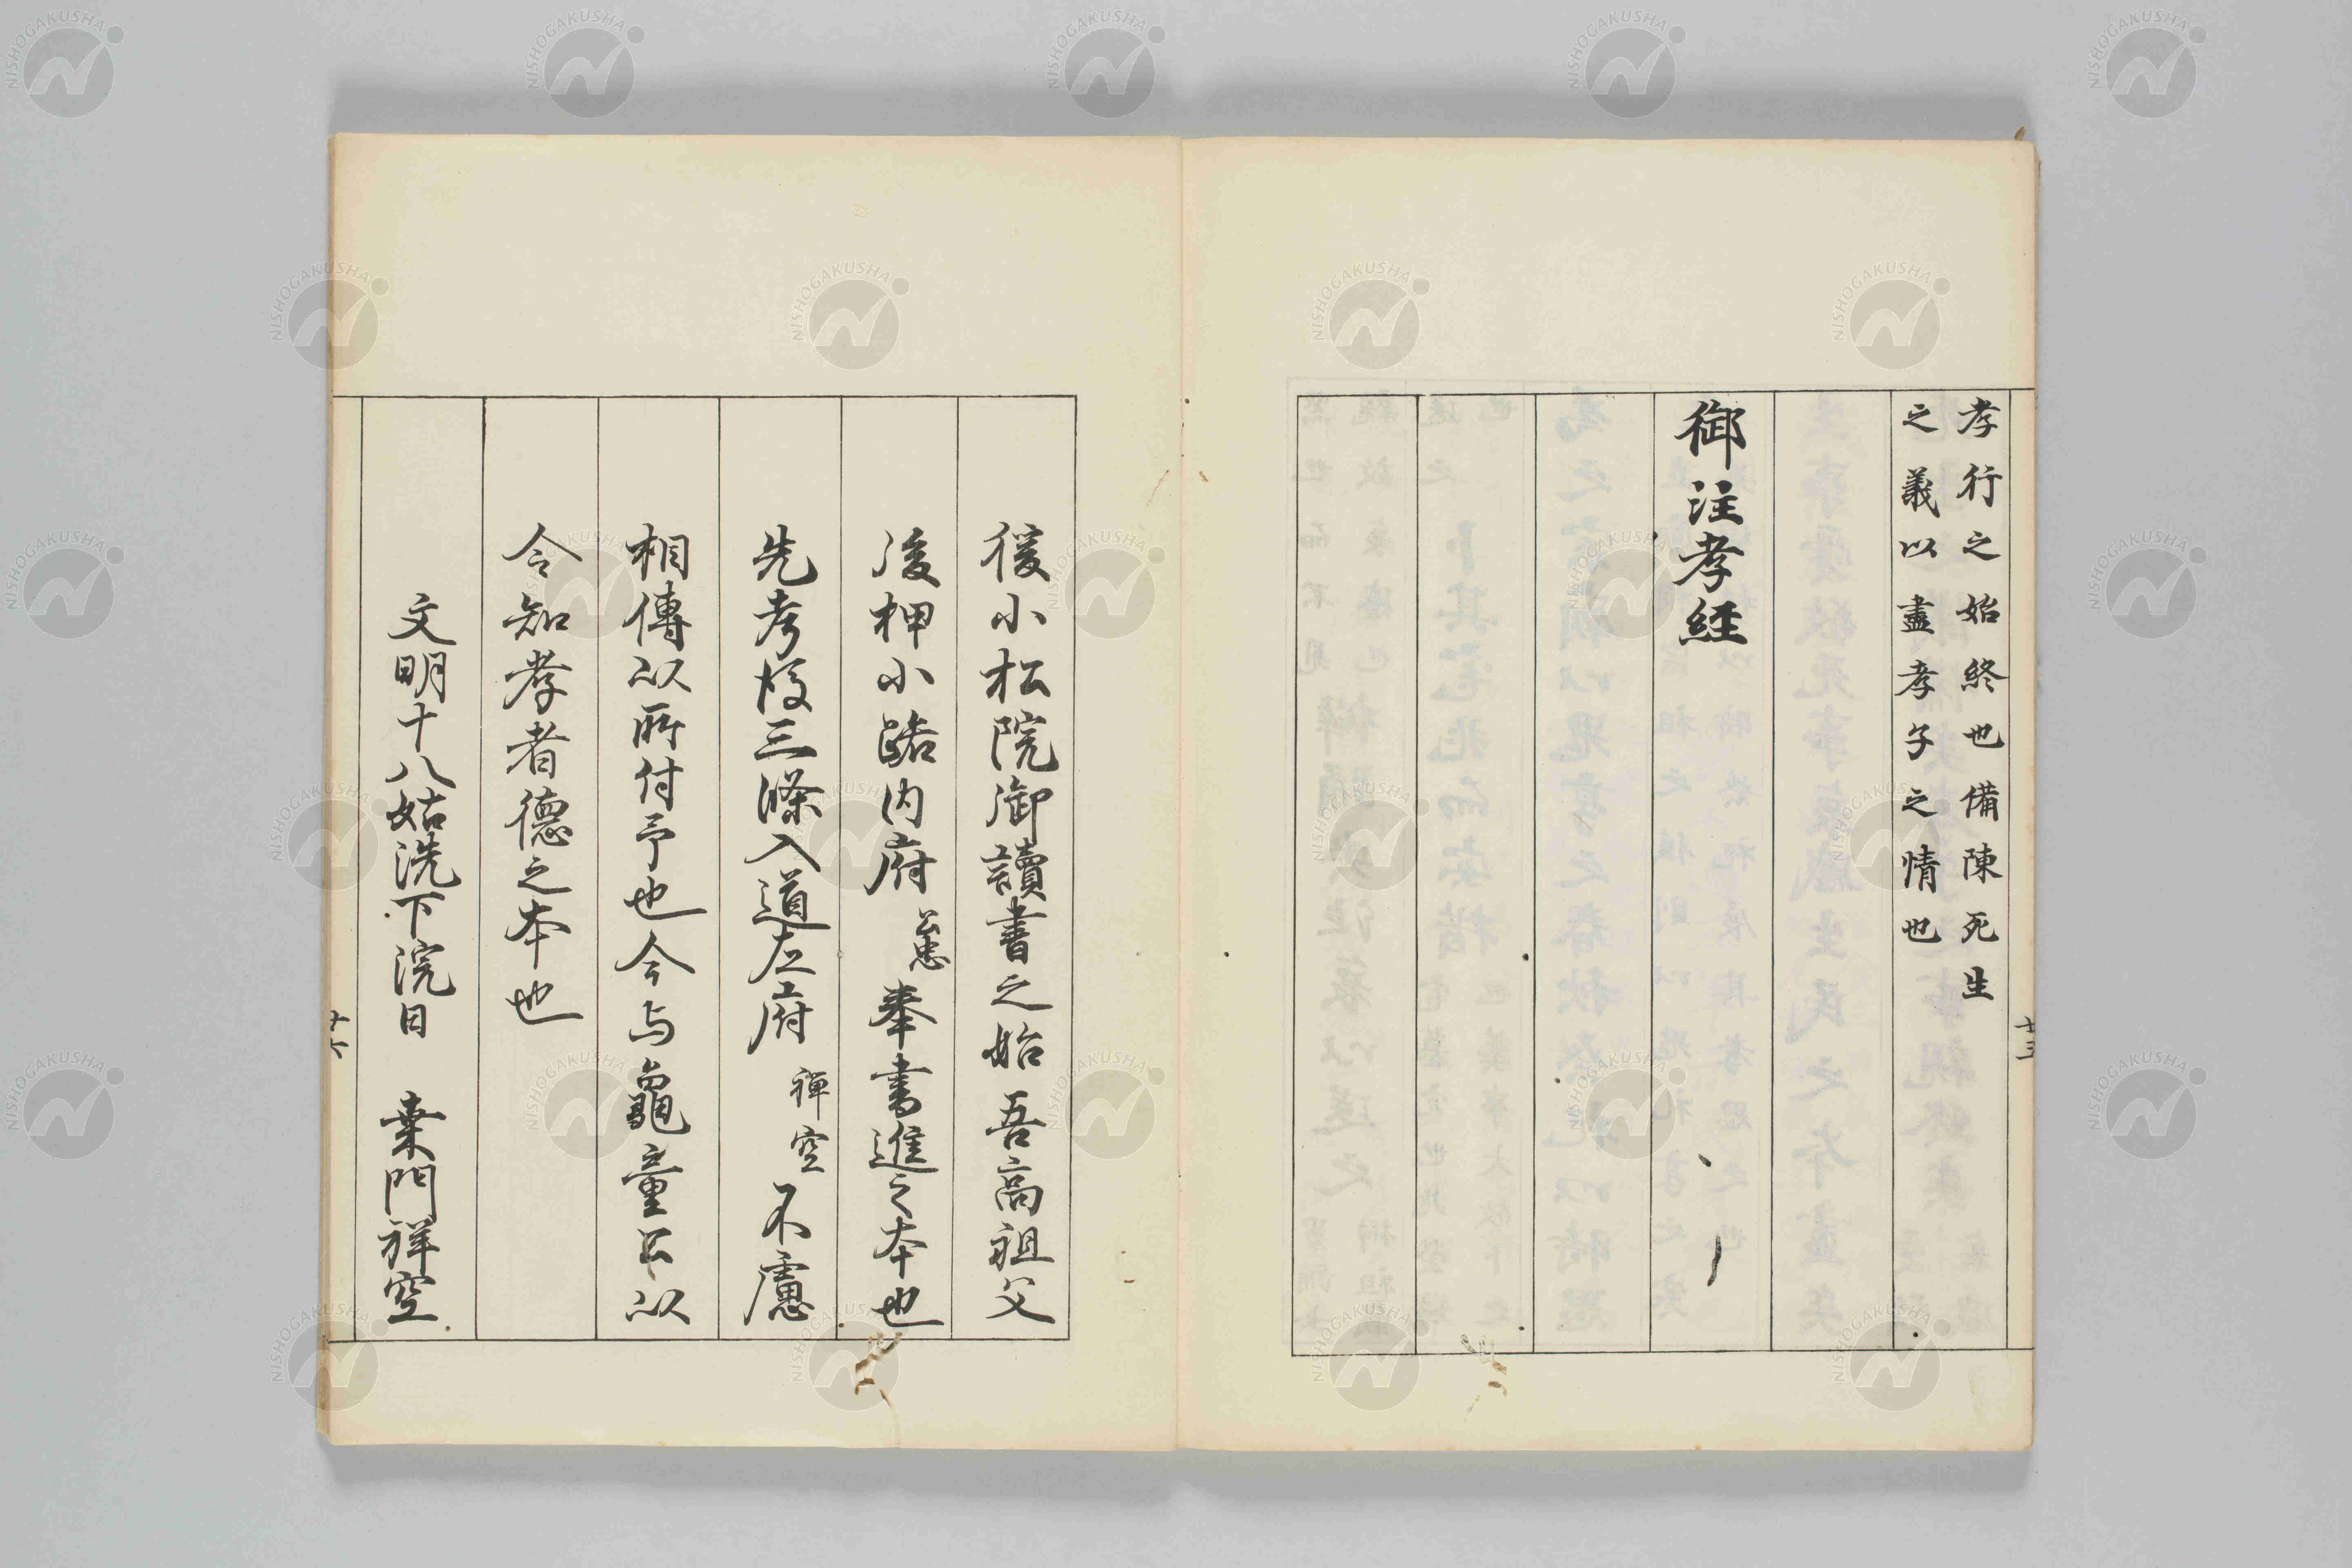 孝行之始終也備陳死生
之義以盡孝子之情也
御注孝経
後小松院御讀書之始吾高祖父
後押小路内府公忠奉書進之本也
先考後三條入道左府禅空不慮
相傳以所付予也今与龜童公以
令知孝者德之本也
文明十八姑洗下浣日 桒門祥空
十三
NISHOGAKUSHA